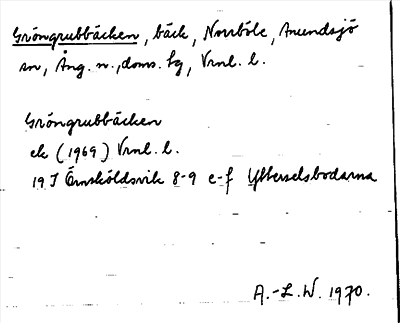 Gröngrubbäcken, bäck, Norrböle, Anundsjö
sn, Ång. n., doms. hg, Vrnl. l.
Gröngrubbäcken
ek (1969) Vrnl. l.
19 J Örnsköldsvik 8-9 e-f Ytterselsbodarna
A.-L. W. 1970.